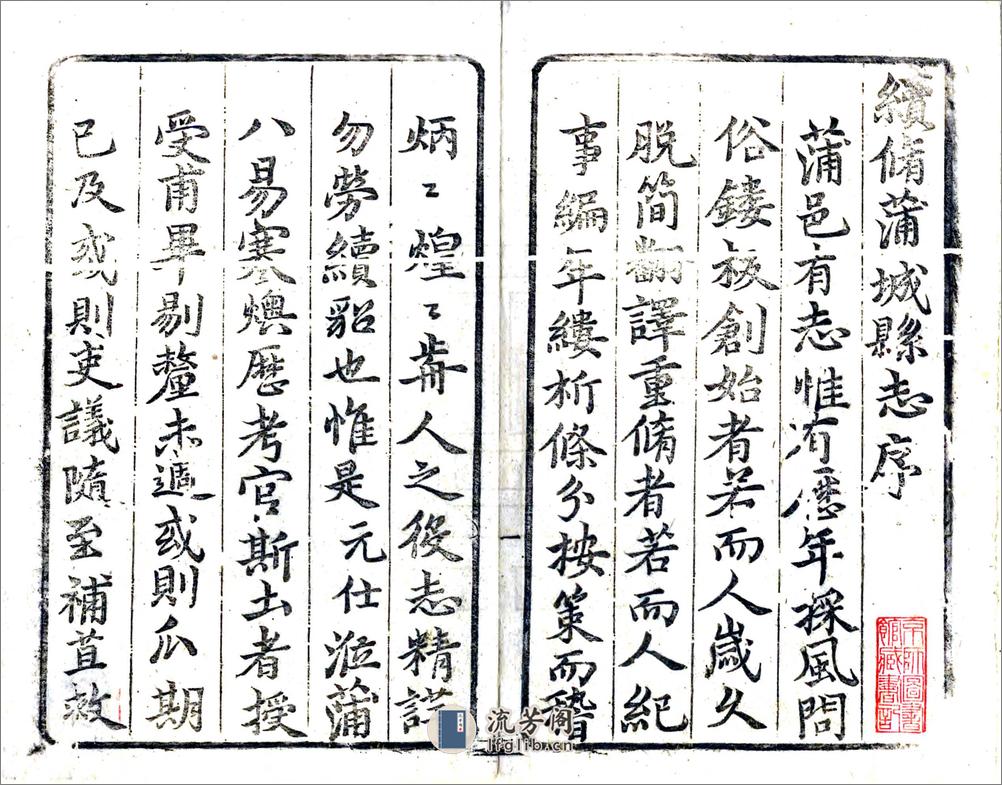 續脩蒲城縣志序
蒲邑有志惟有歷年採風問
俗鏤板創始者若而人歲久
脫簡翻譯重脩者若而人紀
事編年縷析條分按策而稽
炳〻煌〻前人之役志精詳
勿勞續貂也惟是元仕涖蒲
八易寒燠歷考官斯土者授
受甫畢剔釐未遑或則瓜期
已及或則吏議隨至補苴救
一
流芳阁
lfglib.cn